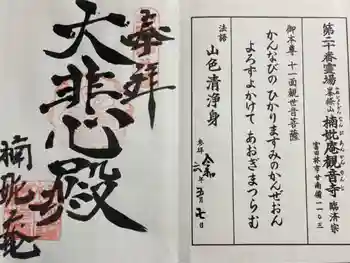 第二十番霊場 峯條山 楠妣庵観音寺 臨済宗
富田林市甘南備一一〇三
御本尊 十一面観世音菩薩
かんなびの ひかりますみのかんぜおん
よろずよかけて あおぎまつらむ
法語
山色清浄身
参拝 令和六年五月七日
奉拝
大悲殿
楠妣庵